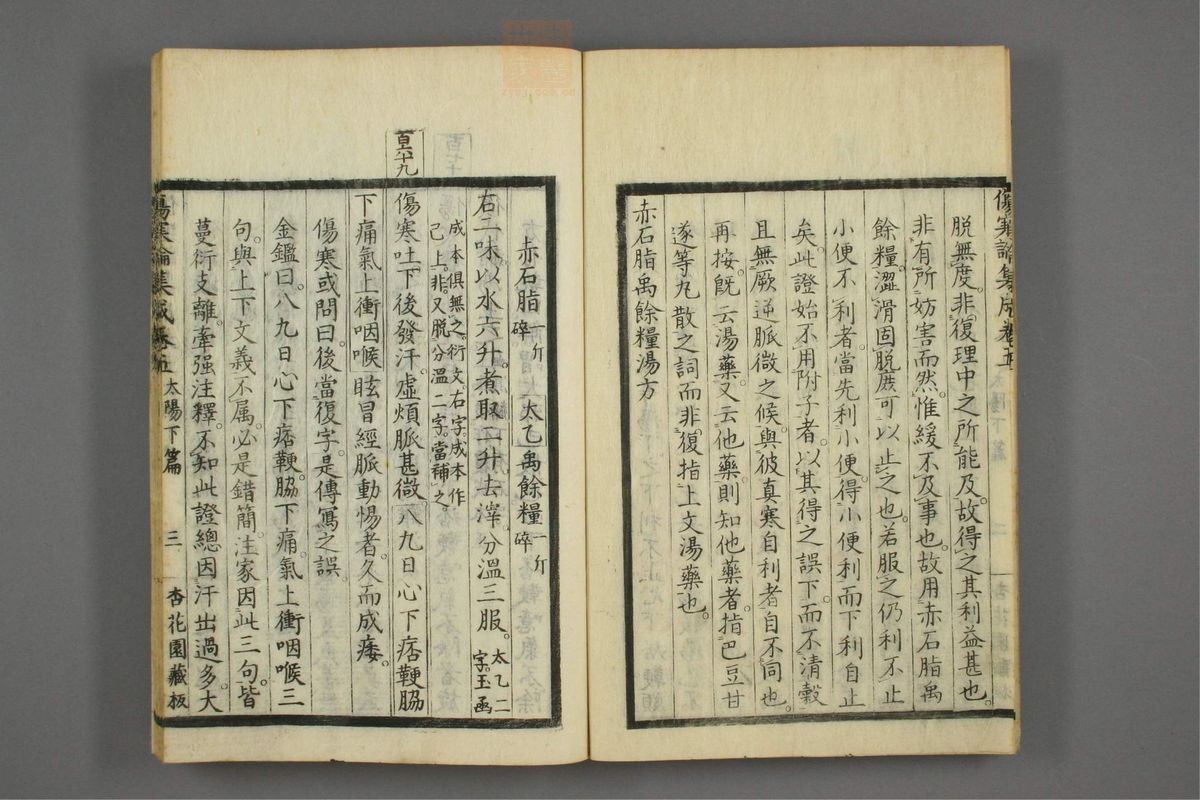 傷寒論集成卷五
脫無度。非復理中之所能及。故得之其利益甚也。
非有所妨害而然。惟緩不及事也。故用赤石脂禹
餘糧。澀滑固脫庶可以止之也。若服之仍利不止
小便不利者。當先利小便。得小便利而下利自止
矣。此證始不用附子者。以其得之誤下。而不清穀
且無厥逆脈微之候。與彼真寒自利者。自不同也。
再按。既云湯藥。又云他藥。則知他藥者。指巴豆甘
遂等丸散之詞。而非復指上文湯藥也。
赤石脂禹餘糧湯方
赤石脂一斤碎 太乙禹餘糧一斤碎
右二味。以水六升。煮取二升。去滓。分溫三服。太乙二字。玉函
成本俱無之。衍文。右字。成本作
己上。非。又脫分溫二字。當補之。
百六十九
傷寒吐下後發汗。虛煩脈甚微。八九日心下痞鞕脇
下痛氣上衝咽喉眩冒經脈動惕者。久而成痿。
傷寒或問曰。後當復字。是傳寫之誤。
金鑑曰。八九日心下痞鞕。脇下痛。氣上衝咽喉三
句。與上下文義不屬。必是錯簡。注家因此三句。皆
蔓衍支離。牽强注釋。不知此證總因汗出過多。大
傷寒論集成卷五 太陽下篇 三 杏花園藏板